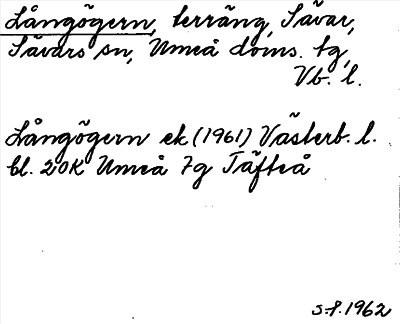 Långögern, terräng, Sävar,
Sävars sn, Umeå doms. tg,
Vb. l.
Långögern ek (1961) Västerb. l.
bl. 20K Umeå 7g Täfteå
s.f. 1962